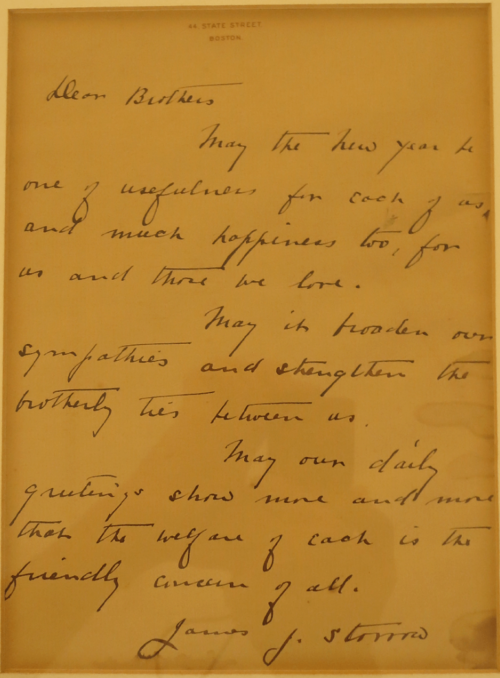 44 STATE STREET
BOSTON.
Dear Brothers
May the New Year be
one of usefulness for each of us,
and much happiness too, for
us and those we love.
May it broaden our
sympathies and strengthen the
brotherly ties between us.
May our daily
greetings show more and more
that the welfare of each is the
friendly concern of all.
James J. Storrow